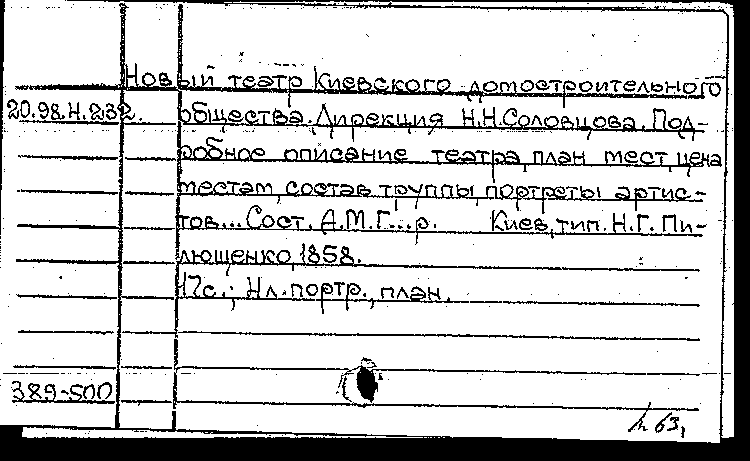 Новый театр Киевского домостроительного
20.98.Н.232. общества. Дирекция Н.Н.Соловцова. Под-
робное описание театра, план мест, цена
местам, состав труппы, портреты артис-
тов... Сост. А.М.Г...р. Киев, тип. Н.Г. Пи-
лющенко, 1858.
17с.; Ил. портр., план.
389-500
63,